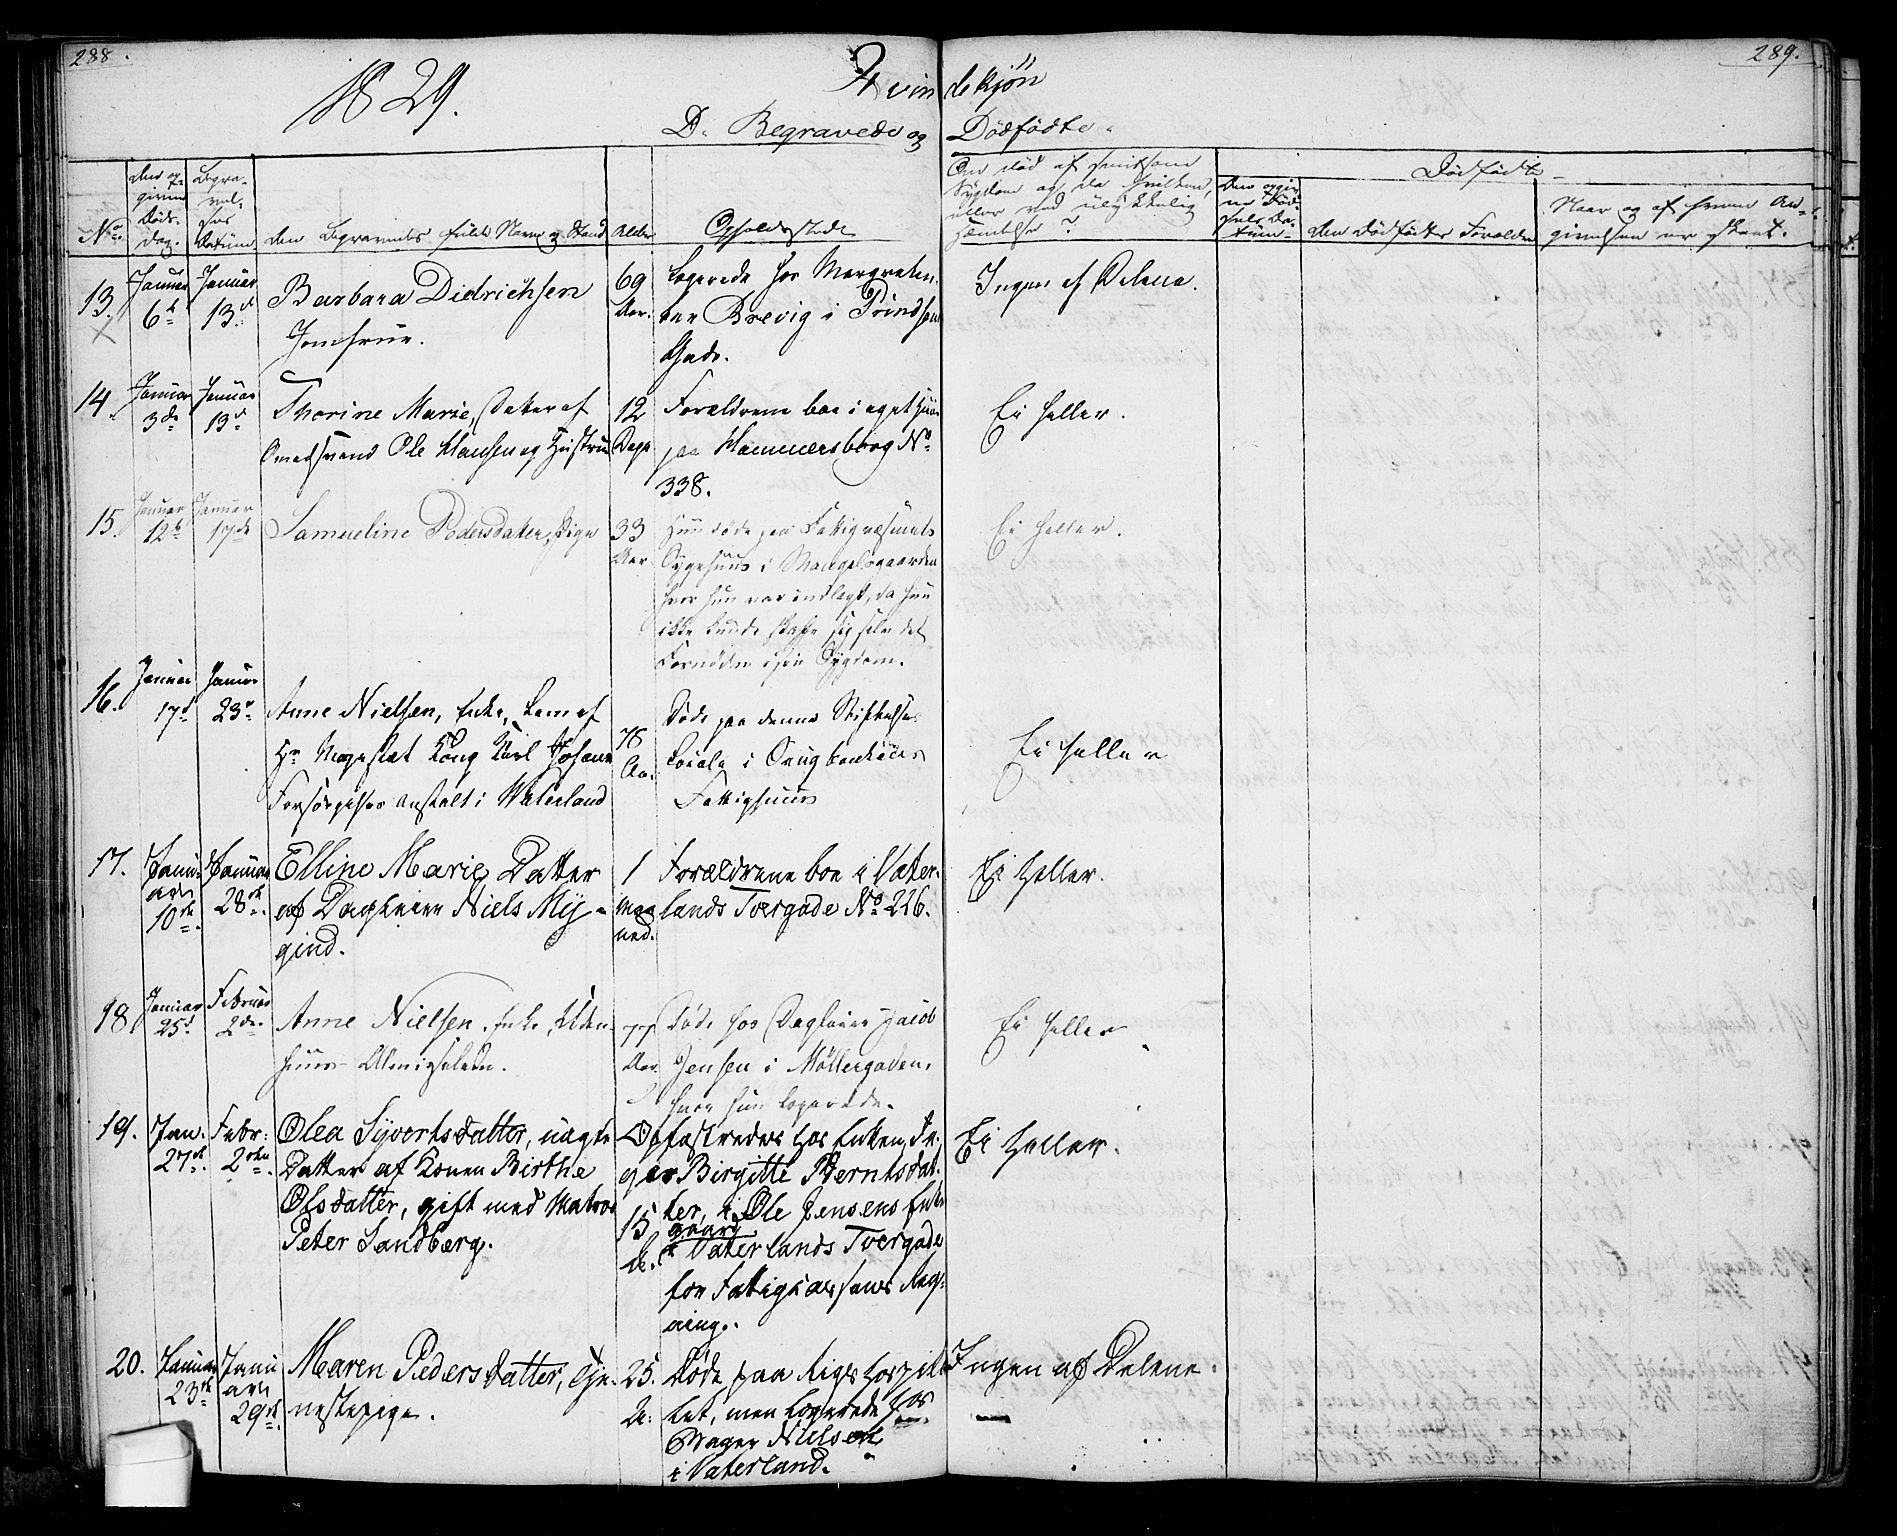 288.
289.
1829.
Qvindekjøn
D. Begravede og Dødfødte.
No.
Den opgivne Døds-Dag.
Begravelses Datum
Den Begravedes fulde Navn og Stand
Alder
Opholdssted
Om død af smitsom
Sygdom og da hvilken,
eller ved ulykkelig
Hændelse?
Dødfødte
Den opgivne Fødsels Datum
Den Dødfødtes Forældre
Naar og af hvem An-
givelsen er skeet.
13.
Januar 6te
Januar 13d
Barbara Didrichsen
Jomfrue.
69 Aar.
Logerede hos
Brevig i Prindsens
Gade.
Ingen af Delene.
14.
Januar 3de
Januar 13d
Thorine Marie, Datter af
Ole Hansen og Hustru
12 Dage
Forældrene boe i eget Huus
paa Hammersborg No.
338.
Ei heller.
15.
Januar 12te
Januar 17de
Samueline Pedersdatter, Pige
33 Aar
Hun døde paa Fattigvæsenets
Sygehuus i Mangelsgaarden
hvor hun var indlagt, da hun
ikke kunde skaffe sig selv det
Fornødne i sin Sygdom.
Ei heller.
16.
Januar 17d
Januar 23d
Anne Nielsen, Enke, Lem af
Hs. Majestæt Kong Karl Johans
Forsørgelses Anstalt i Waterland
78 Aar
Døde paa denne Stiftelses
Locale i
Fattighuus
Ei heller
17.
Januari 10de
Januar 28de.
Elline Marie, Datter
af Dagleier Niels My-
gind.
1 Maaned.
Forældrene boe i Vater-
lands Tvergade No 226.
Ei heller.
18
Januar 25d
Februar 2de.
Anne Nielsen, Enke, Uden-
huus Almisselem.
77 Aar
Døde hos Dagleier Jacob
Jensen i Møllergaden,
hvor hun logerede.
Ei heller
19.
Jan. 27de.
Febr: 2den.
Olea Syvertsdatter, uægte
Datter af Konen Birthe
Olsdatter, gift med Matros
Peter Sandberg.
15 A.
Opfostredes hos Enken
Birgitte Berntsdat-
ter, i Ole Jensens Enkes
gaard
i Vaterlands Tvergade
for Fattigcassens Reg-
ning.
Ei heller.
20.
Januar 23de
Januari 29de
Maren Pedersdatter, Tje-
nestepige.
25. A.
Døde paa Rigshospita-
let, men logerede hos
Nielsen
i Vaterland.
Ingen af Delene.